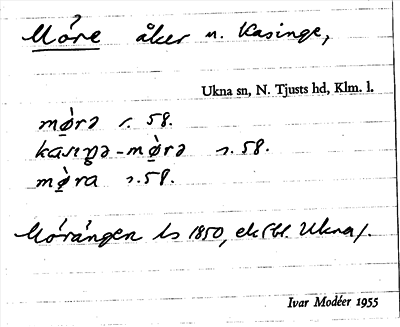 Móre åker n. Kasinge,
Ukna sn, N. Tjusts hd, Klm. l.
mø̀rə s. 58.
kasıŋə-mø̀rə s. 58.
mø̀ra s. 58.
Mórängen ls 1850, ek (bl. Ukna).
Ivar Modéer 1955